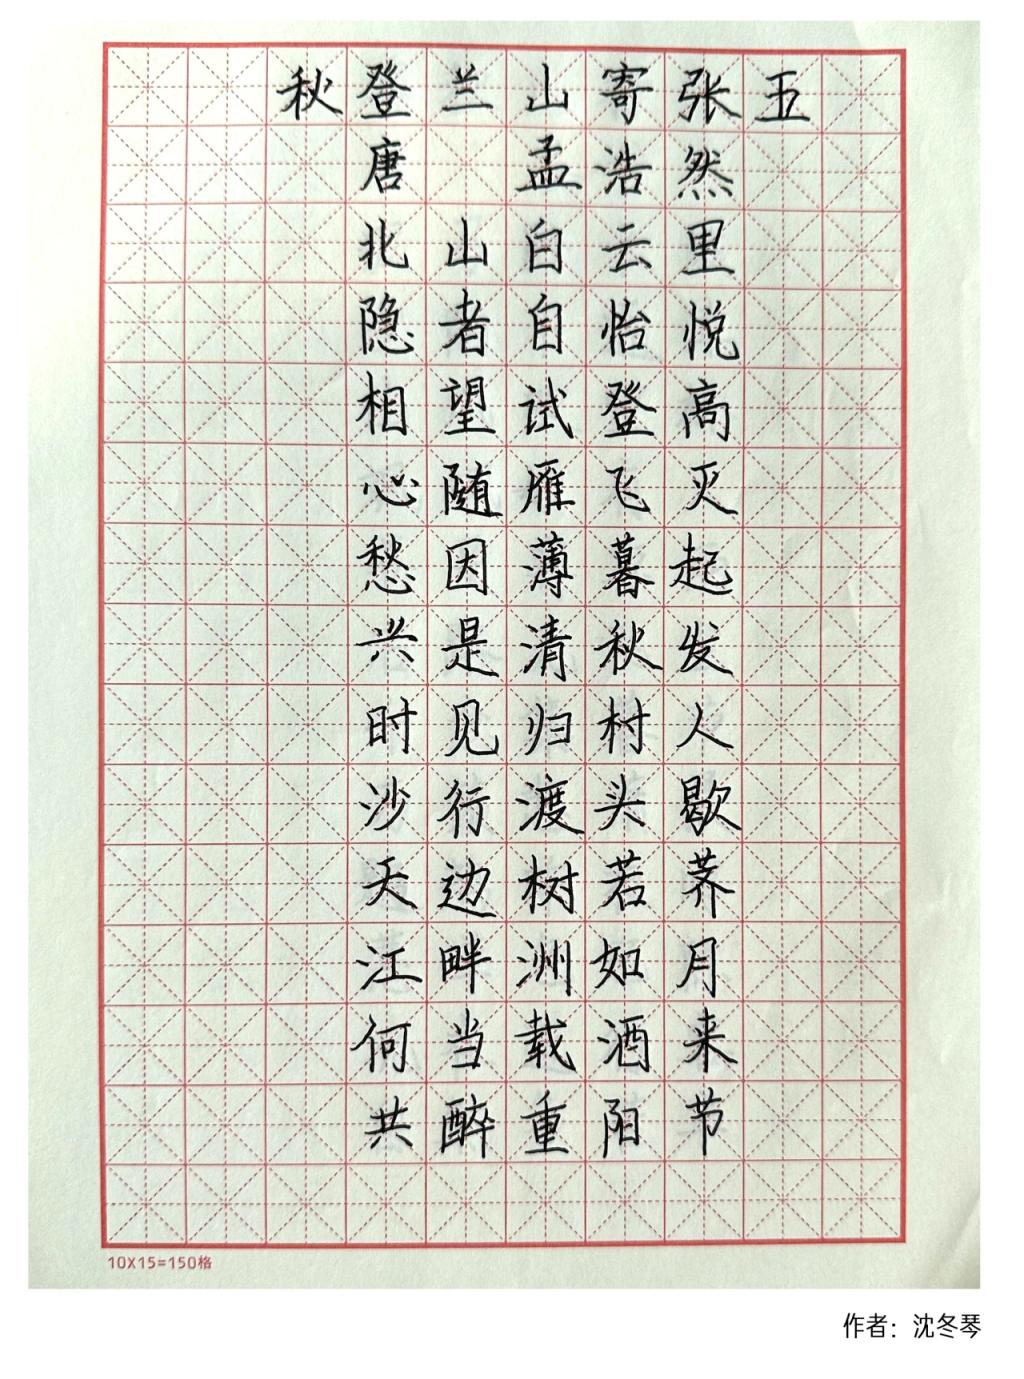 秋登兰山寄张五
唐 孟浩然
北山白云里
隐者自怡悦
相望试登高
心随雁飞灭
愁因薄暮起
兴是清秋发
时见归村人
沙行渡头歇
天边树若荠
江畔洲如月
何当载酒来
共醉重阳节
10X15=150格
作者：沈冬琴